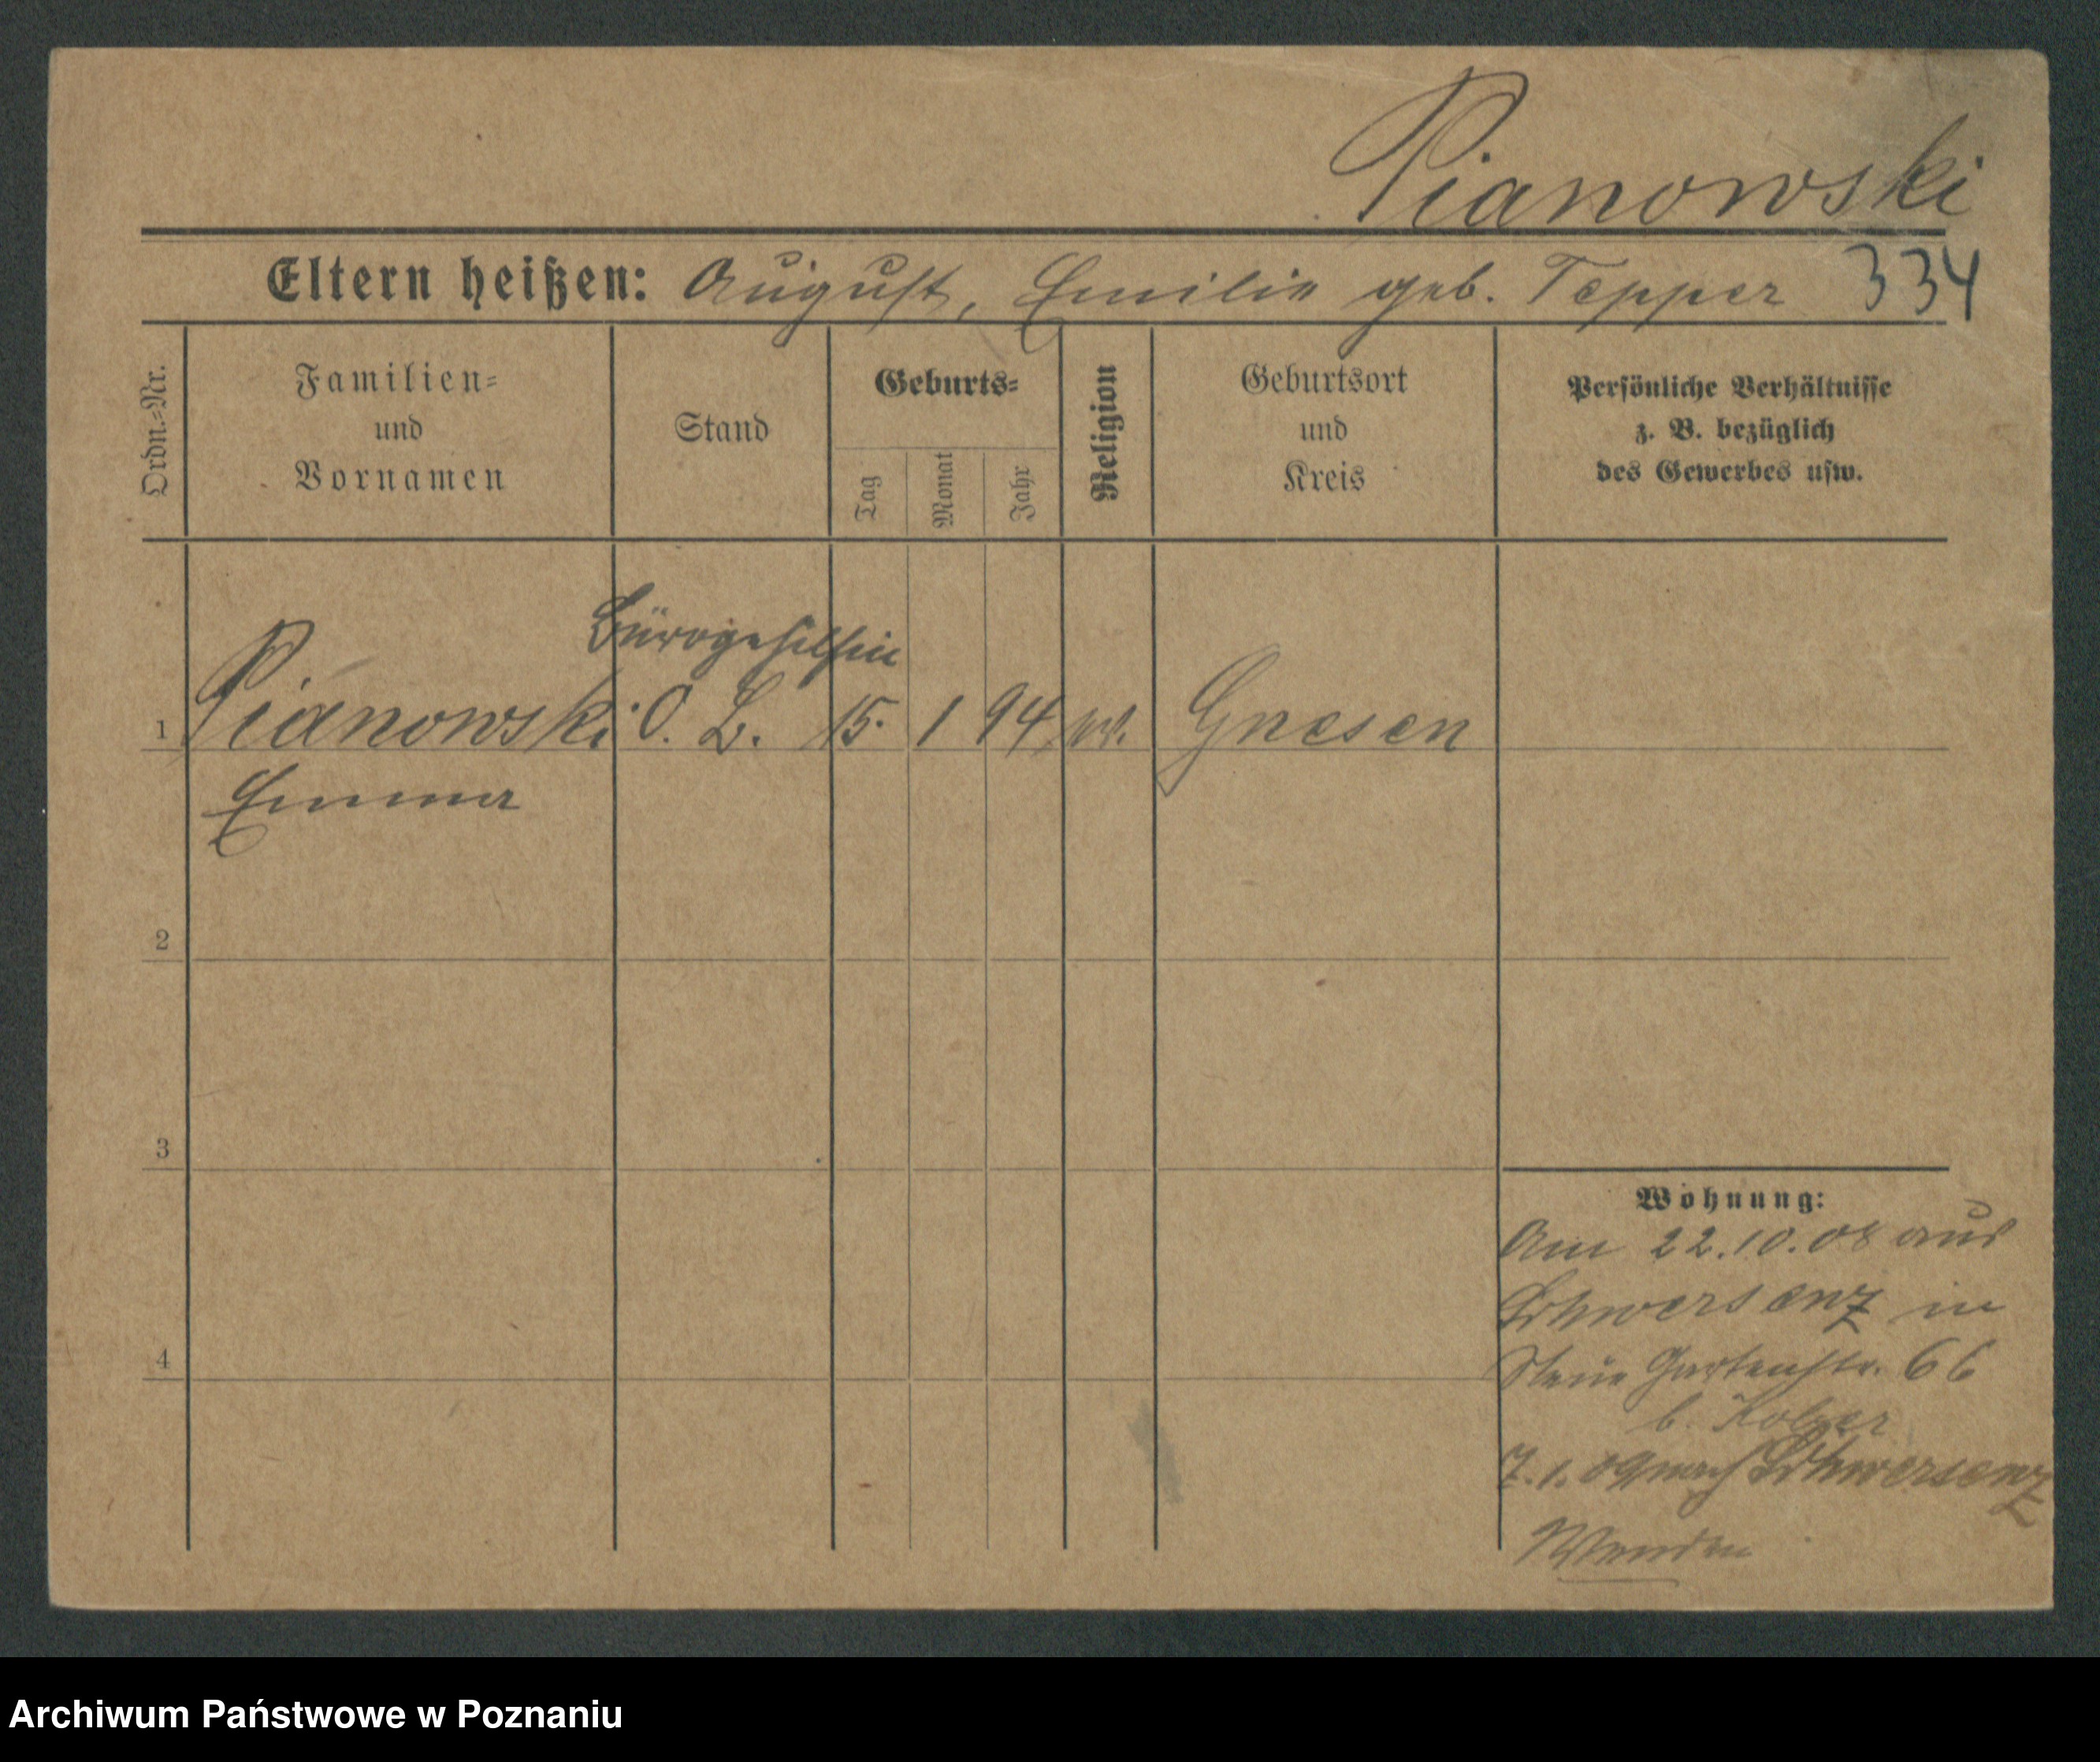 Pianowski
Eltern heißen: August, Emilie geb. Tepper 334
Ordn.-Nr.
Familien-
und
Vornamen
Stand
Geburts-
Tag
Monat
Jahr
Religion
Geburtsort
und
Kreis
Persönliche Verhältnisse
z. B. bezüglich
des Gewerbes usw.
Bürogehilfin
1 Pianowski O. L. 15. 1 94 ev. Gnesen
Emma
2
3
4
Wohnung:
Am 22.10.08 aus
Schwersenz in
Neue Gartenstr. 66
b.
7.1.09 nach Schwersenz
Wenden
Archiwum Państwowe w Poznaniu